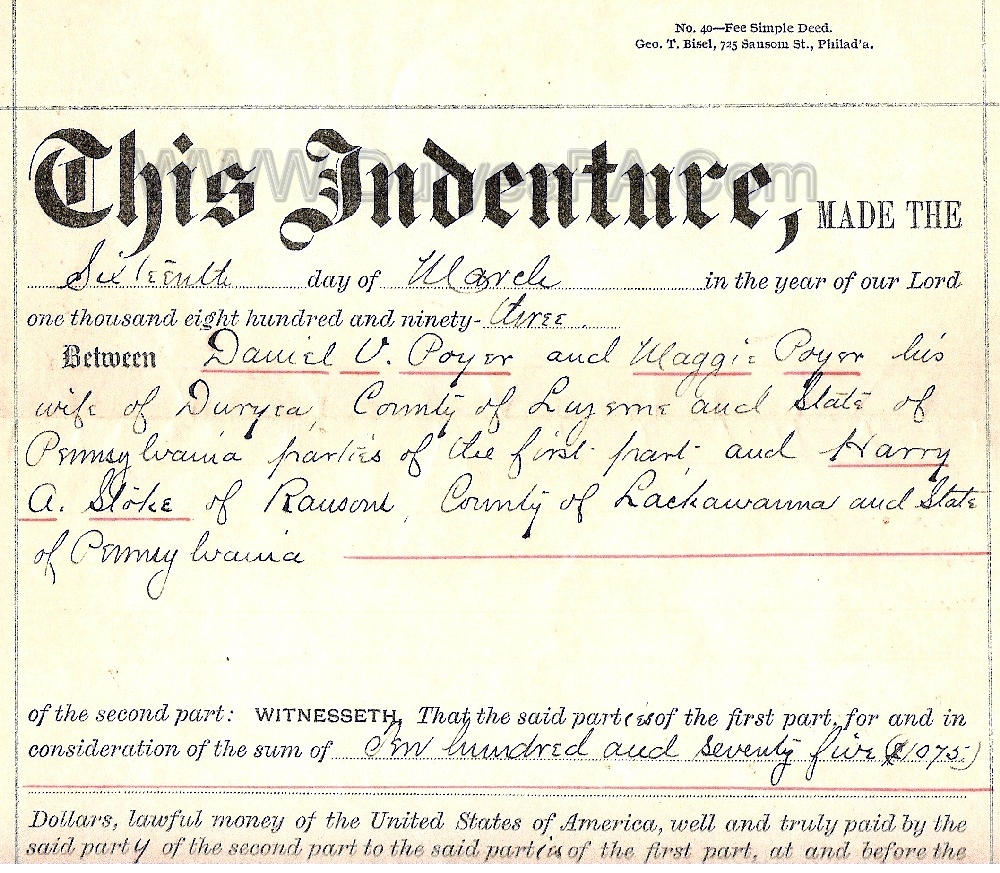 No. 40—Fee Simple Deed.
Geo. T. Bisel, 725 Sansom St., Philad'a.
WWW.DuryeaPA.Com
This Indenture, MADE THE
Sixteenth day of March in the year of our Lord
one thousand eight hundred and ninety- three.
Between Daniel V. Poyer and Maggie Poyer his
wife of Duryea, County of Luzerne and State of
Pennsylvania parties of the first part and Harry
A. Stoke of Ransom, County of Lackawanna and State
of Pennsylvania
of the second part: WITNESSETH, That the said parties of the first part, for and in
consideration of the sum of Ten hundred and seventy five ($1075.)
Dollars, lawful money of the United States of America, well and truly paid by the
said party of the second part to the said parties of the first part, at and before the